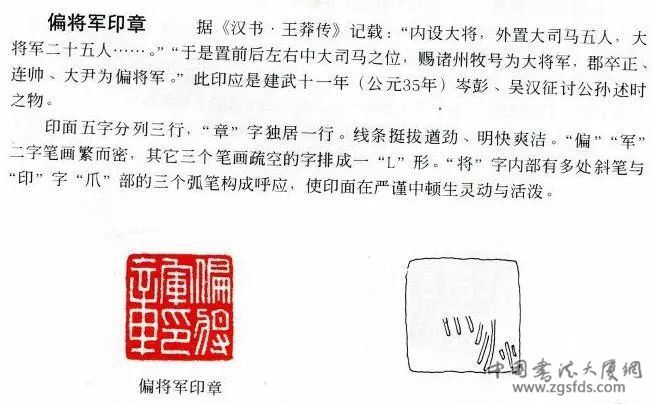 偏将军印章 据《汉书·王莽传》记载：“内设大将，外置大司马五人，大
将军二十五人……。”“于是置前后左右中大司马之位，赐诸州牧号为大将军，郡卒正、
连帅、大尹为偏将军。”此印应是建武十一年（公元35年）岑彭、吴汉征讨公孙述时
之物。
印面五字分列三行，“章”字独居一行。线条挺拔遒劲、明快爽洁。“偏”“军”
二字笔画繁而密，其它三个笔画疏空的字排成一“L”形。“将”字内部有多处斜笔与
“印”字“爪”部的三个弧笔构成呼应，使印面在严谨中顿生灵动与活泼。
偏将军印章
偏将军印章
中国书法大厦网
www.zgsfds.com